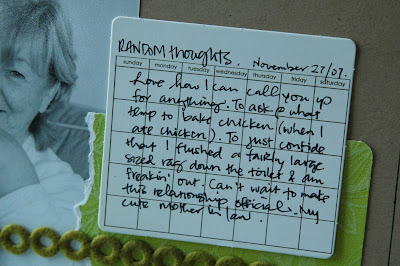 RANDOM thoughts. November 27/07.
sunday monday tuesday wednesday thursday friday saturday
Love how I can call you up
for anything. To ask @ what
temp to bake chicken (when I
ate chicken). To just confide
that I flushed a fairly large
sized rag down the toilet & am
freakin' out. Can't wait to make
this relationship official. My
cute mother in law.